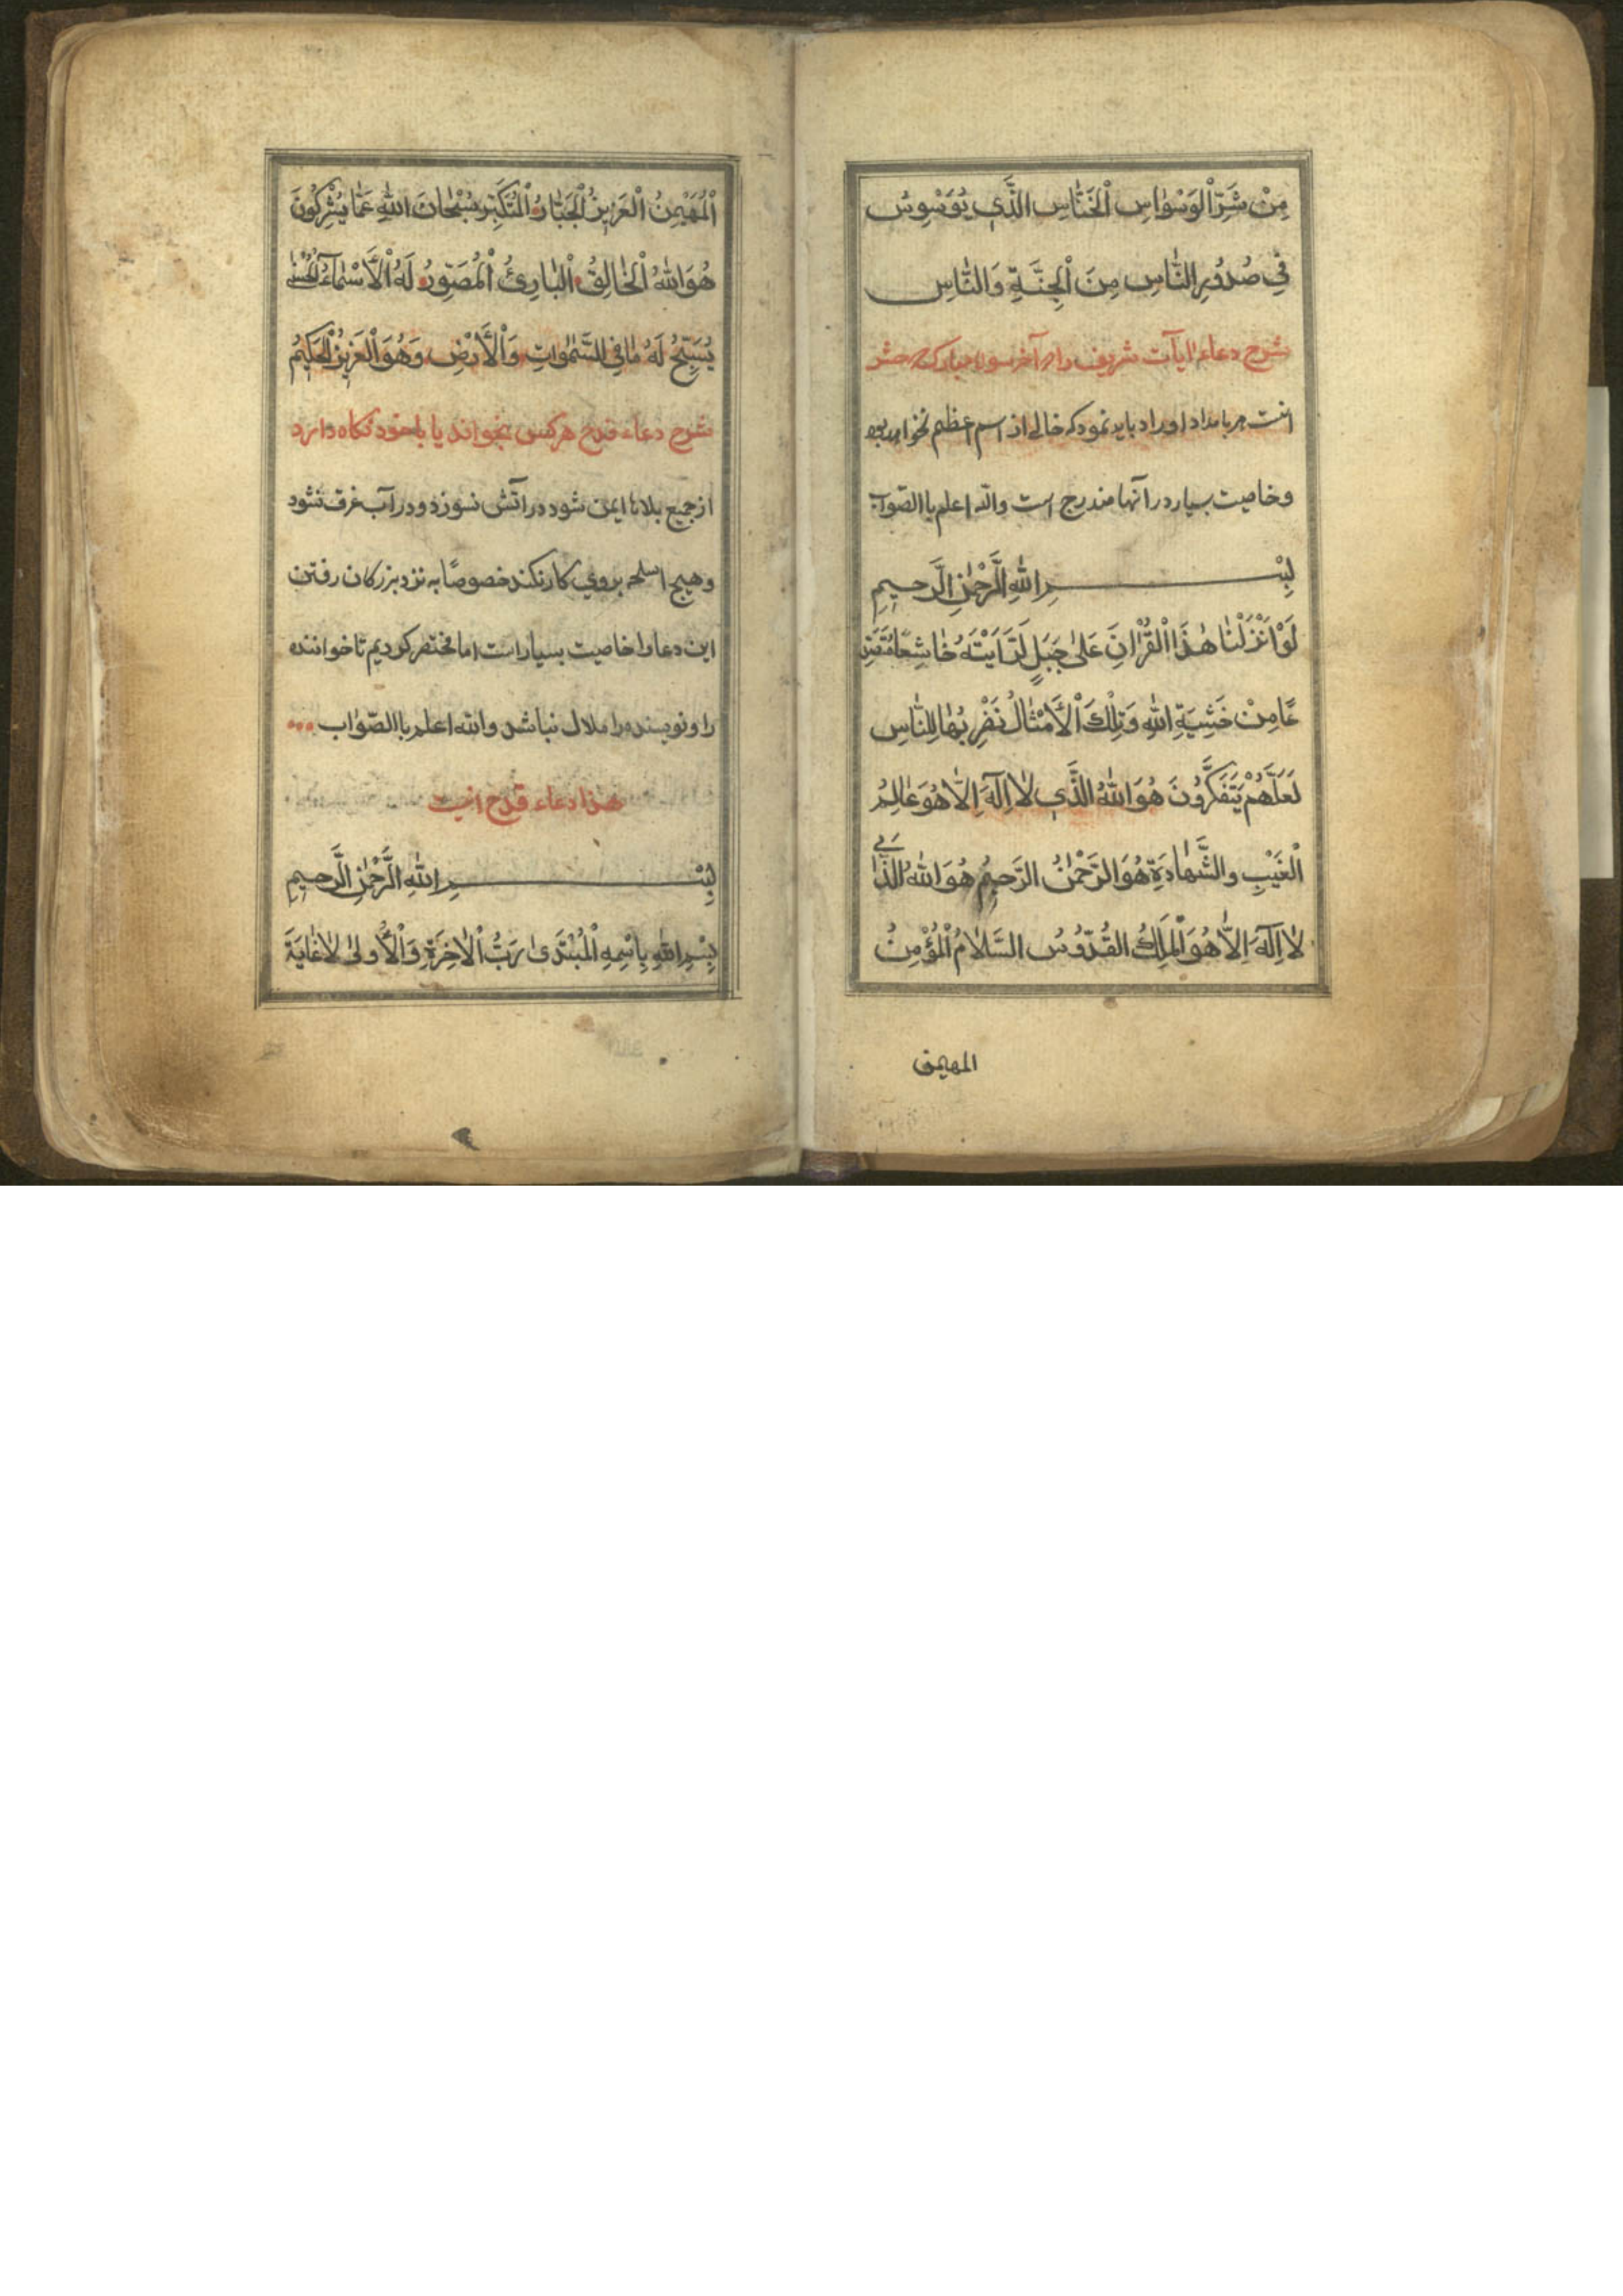 مِنْ شَرِّ الْوَسْوٰاسِ الْخَنّٰاسِ الَّذٖي يُوَسْوِسُ
فٖي صُدُورِ النّٰاسِ مِنَ الْجِنَّةِ وَالنّٰاسِ
شرح دعاء آیات شریف در آخر سوره مبارکه حشر
است هر بامداد اوراد باید نمود که خالی از اسم اعظم نخواهد بود
و خاصیت بسیار در آنها مندرج است والله اعلم باالصّواب
بِسْــــــمِ اللهِ الرَّحْمٰنِ الرَّحيمِ
لَوْ اَنْزَلْنٰا هٰذَا الْقُرْاٰنَ عَلىٰ جَبَلٍ لَرَاَيْتَهُ خٰاشِعًا مُتَصَدِّ
عًا مِنْ خَشْيَةِ اللهِ وَتِلْكَ الْاَمْثٰالُ نَضْرِبُهٰا لِلنّٰاسِ
لَعَلَّهُمْ يَتَفَكَّرُونَ هُوَ اللهُ الَّذٖي لٰا اِلٰهَ اِلّٰا هُوَ عٰالِمُ
الْغَيْبِ وَالشَّهٰادَةِ هُوَ الرَّحْمٰنُ الرَّحيمُ هُوَ اللهُ الَّذٖي
لٰا اِلٰهَ اِلّٰا هُوَ الْمَلِكُ الْقُدُّوسُ السَّلٰامُ الْمُؤْمِنُ
المهیمن
الْمُهَيْمِنُ الْعَزيزُ الْجَبّٰارُ الْمُتَكَبِّرُ سُبْحٰانَ اللهِ عَمّٰا يُشْرِكُونَ
هُوَ اللهُ الْخٰالِقُ الْبٰارِئُ الْمُصَوِّرُ لَهُ الْاَسْمٰآءُ الْحُسْنىٰ
يُسَبِّحُ لَهُ مٰا فِي السَّمٰوٰاتِ وَالْاَرْضِ وَهُوَ الْعَزيزُ الْحَكيمُ
شرح دعاء قدح هر کس بخواند یا با خود نکاه دارد
از جمیع بلاها ایمن شود در آتش نسوزد و در آب غرق نشود
و هیچ اسلحه بروی کار نکند خصوصًا به نزد بزرکان رفتن
این دعا را خاصیت بسیار است اما مختصر کردیم تا خواننده
را و نویسنده را ملال نباشد والله اعلم باالصّواب
هذا دعاء قدح انیست
بِسْــــــمِ اللهِ الرَّحْمٰنِ الرَّحيمِ
بِسْمِ اللهِ بِاسْمِهِ الْمُبْتَدَىٰ رَبُّ الْاٰخِرَةِ وَالْاُولىٰ لٰا غٰايَةَ